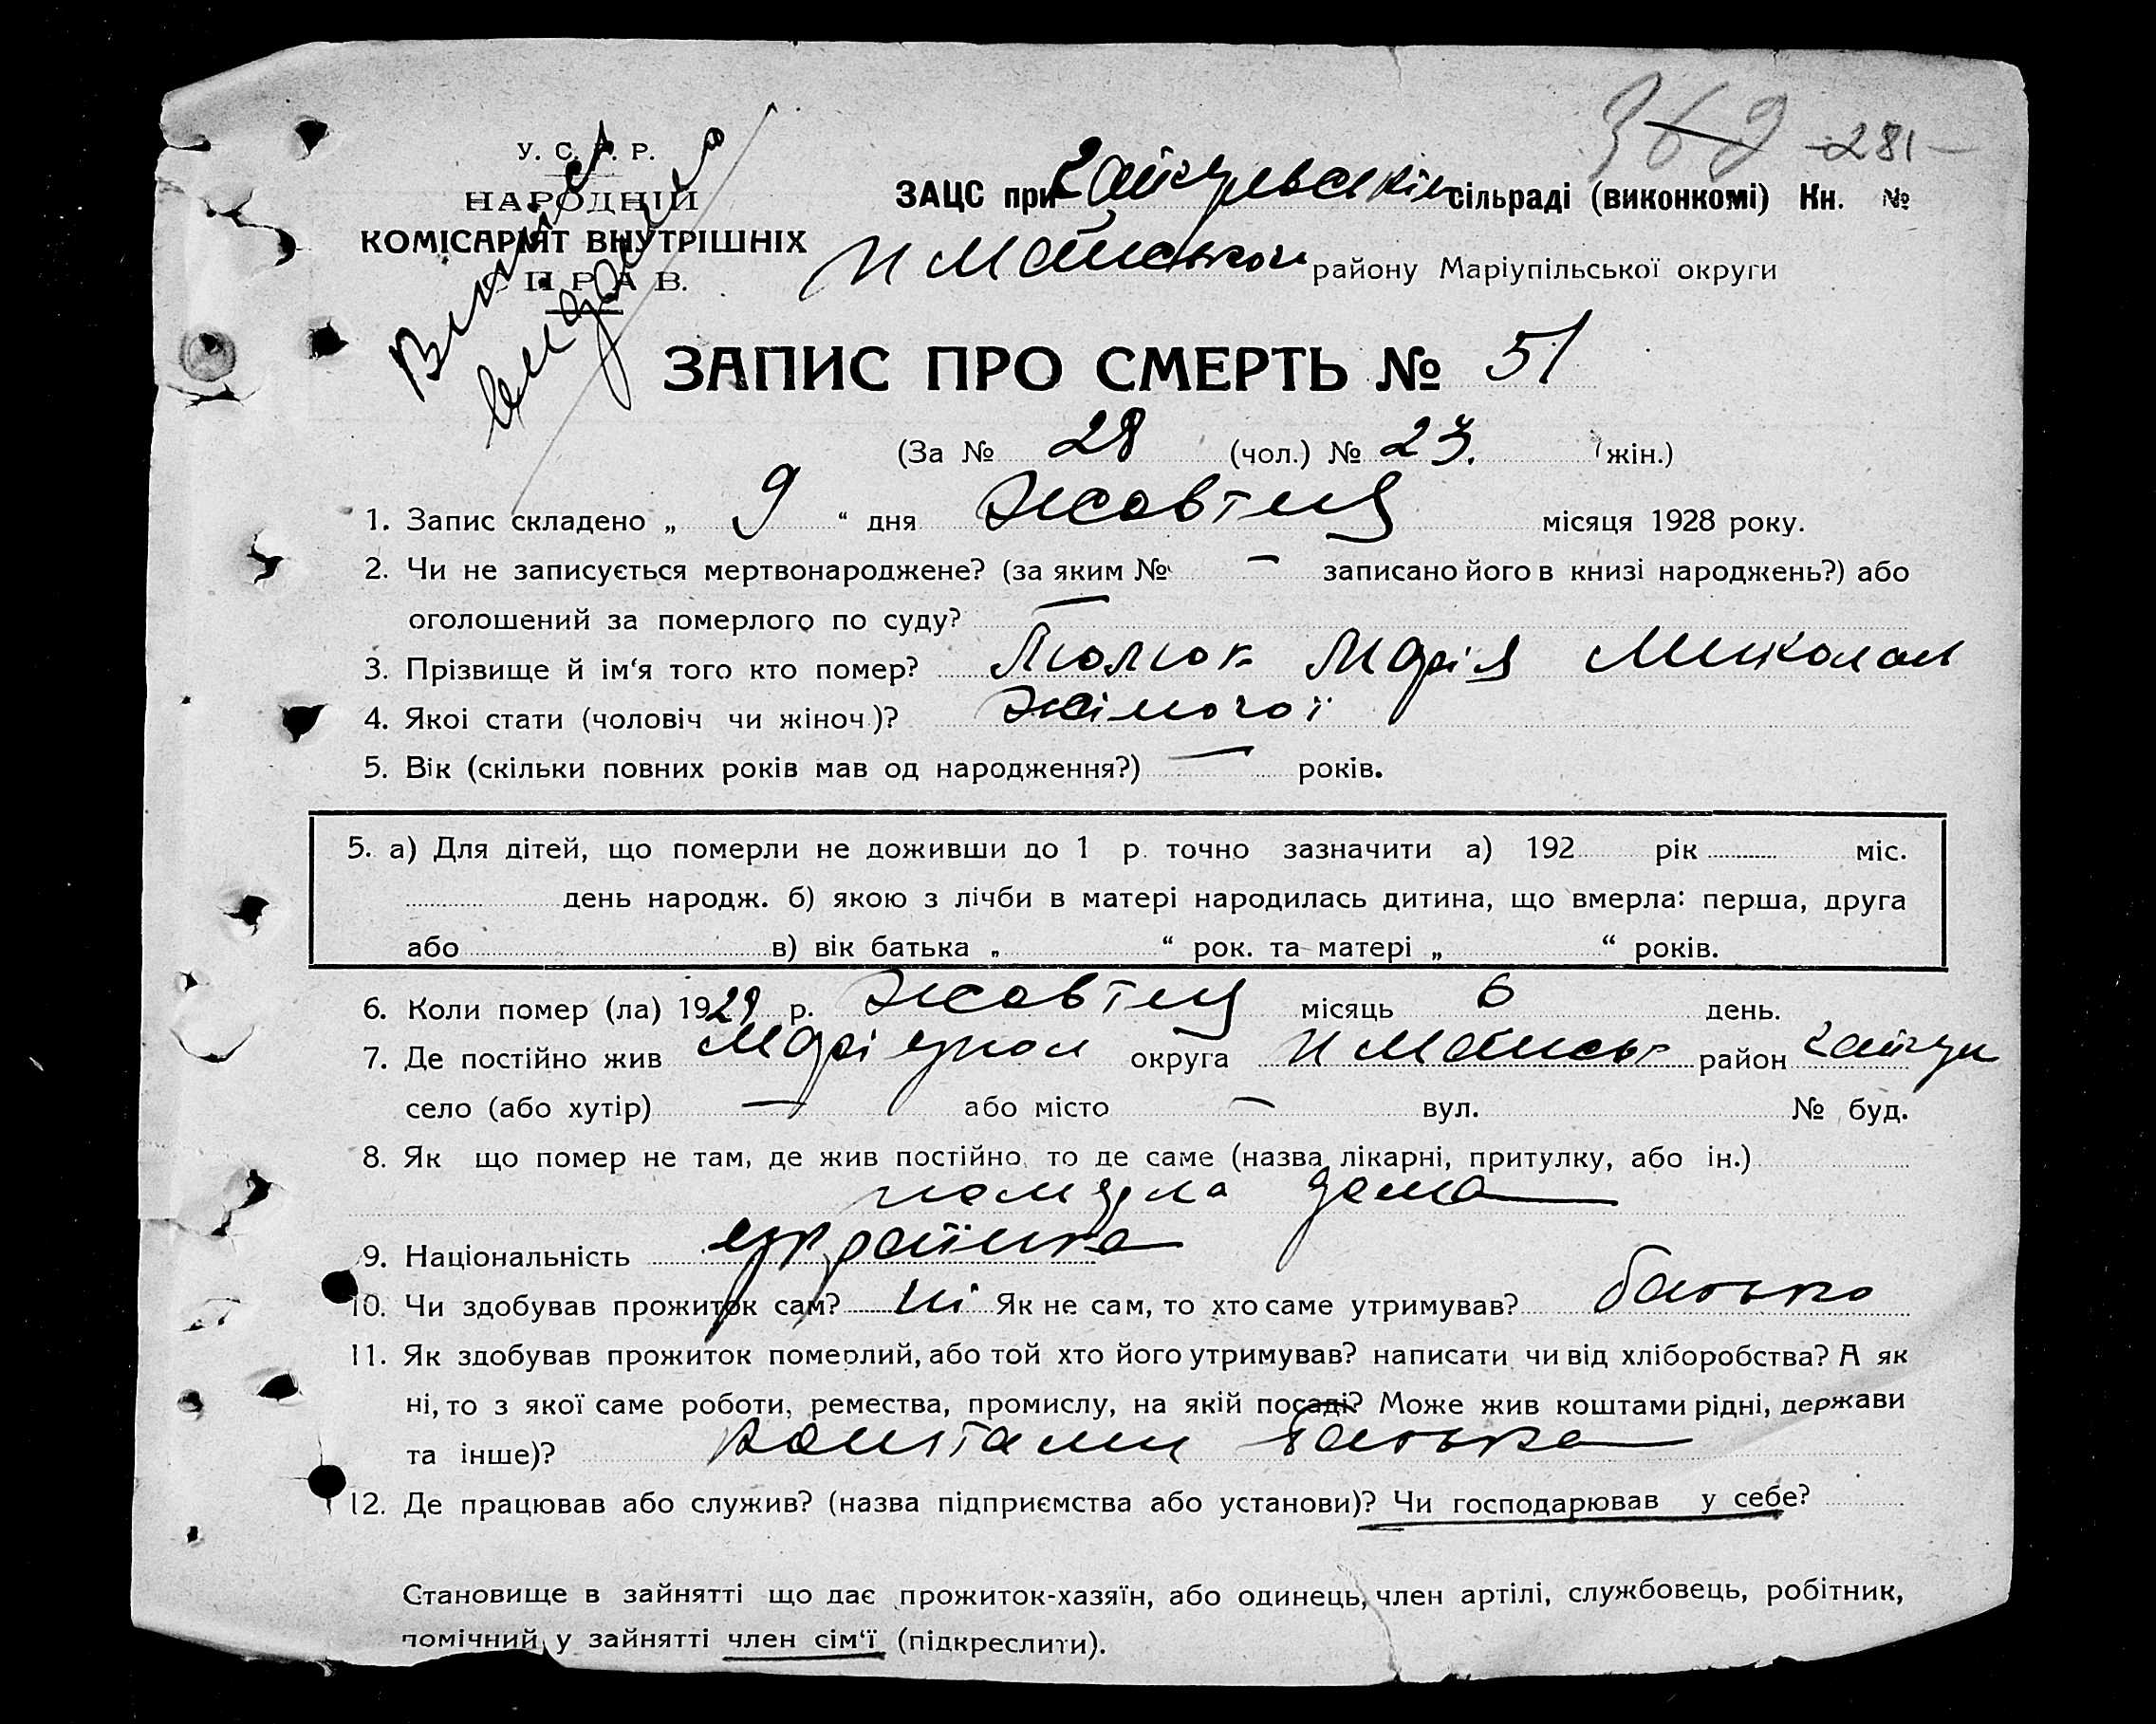 369 -281-
У. С. Р. Р.
НАРОДНІЙ
КОМІСАРІЯТ ВНУТРІШНІХ
СПРАВ.
ЗАЦС при сільраді (виконкомі) Кн. №
району Маріупільської округи
ЗАПИС ПРО СМЕРТЬ № 51
(За № 28 (чол.) № 23. жін.)
1. Запис складено „ 9 “ дня Жовтня місяця 1928 року.
2. Чи не записується мертвонароджене? (за яким № — записано його в книзі народжень?) або
оголошений за померлого по суду? —
3. Прізвище й ім‘я того кто помер? Марія Миколаи
4. Якоі стати (чоловіч чи жіноч.)? Жіночої
5. Вік (скільки повних років мав од народження?) — років.
5. а) Для дітей, що померли не доживши до 1 р. точно зазначити а) 192 рік міс.
день народж. б) якою з лічби в матері народилась дитина, що вмерла: перша, друга
або в) вік батька „ “ рок. та матері „ “ років.
6. Коли помер (ла) 1928 р. Жовтня місяць 6 день.
7. Де постійно жив Маріупол округа район Гайчур
село (або хутір) — або місто — вул. № буд.
8. Як що помер не там, де жив постійно, то де саме (назва лікарні, притулку, або ін.)
померла дома
9. Національність українка
10. Чи здобував прожиток сам? Ні Як не сам, то хто саме утримував? батько
11. Як здобував прожиток померлий, або той хто його утримував? написати чи від хліборобства? А як
ні, то з якої саме роботи, ремества, промислу, на якій посаді? Може жив коштами рідні, держави
та інше)? коштами батька
12. Де працював або служив? (назва підприємства або установи)? Чи господарював у себе?
Становище в зайнятті що дає прожиток-хазяїн, або одинець, член артілі, службовець, робітник,
помічний у зайнятті член сім‘ї (підкреслити).